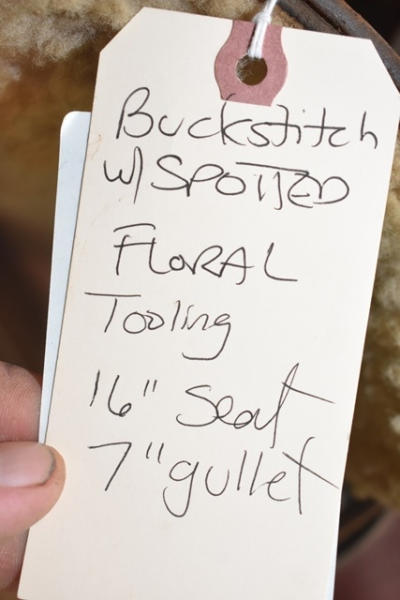 Buckstitch
w/ SPOTTED
FLORAL
Tooling
16" Seat
7" gullet